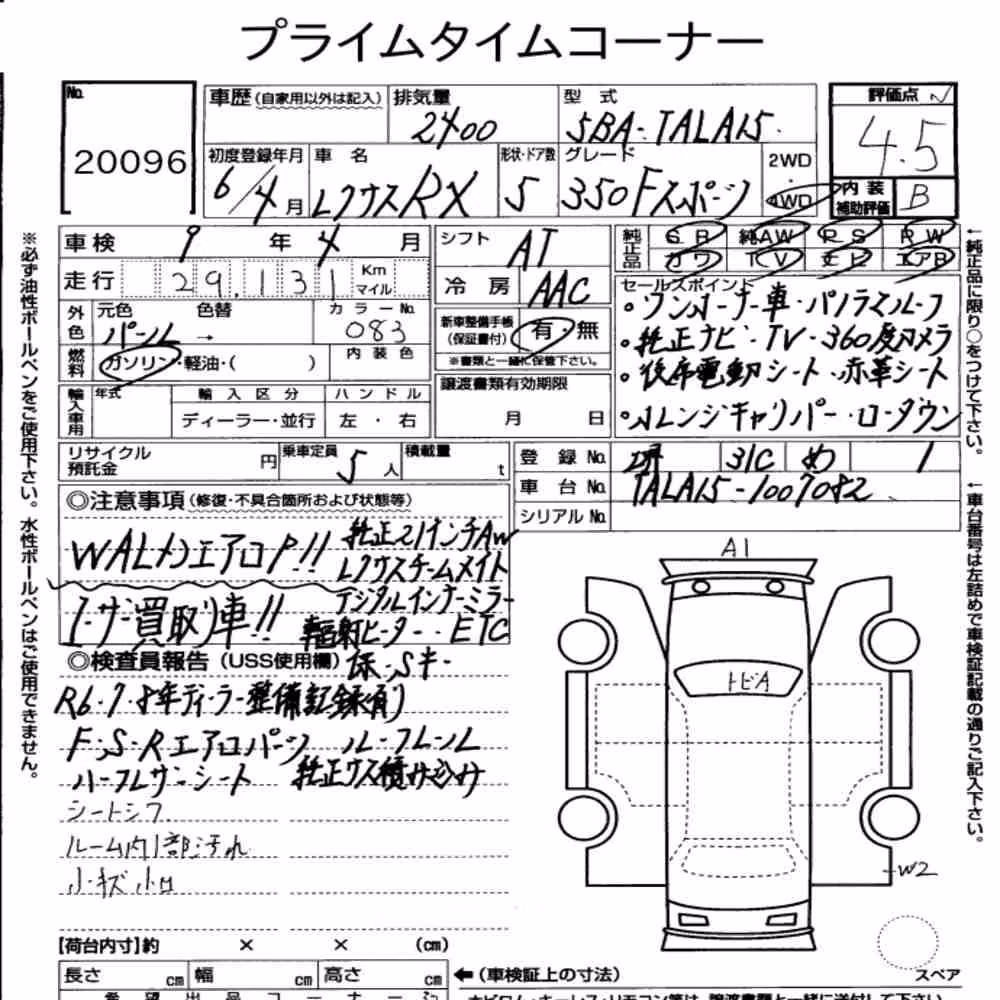 プライムタイムコーナー
No. 20096
車歴(自家用以外は記入) 排気量 2400 型式 5BA-TALA15
評価点 4.5
初度登録年月 6/4月 車名 レクサスRX 形状・ドア数 5 グレード 350Fスポーツ 2WD・4WD
内装補助評価 B
車検 9年4月 シフト AT 純正品 SR 純AW PS PW
走行 29,131 Km マイル 冷房 AAC カワ TV ナビ エアB
外色 元色 パール 色替 → カラーNo. 083
新車整備手帳(保証書付) 有・無
※書類と一緒に保管下さい。
燃料 ガソリン・軽油・( ) 内装色
譲渡書類有効期限 月 日
輸入車用 年式 輸入区分 ディーラー・並行 ハンドル 左・右
セールスポイント
・ワンオーナー車・パノラマルーフ
・純正ナビ・TV・360度カメラ
・後席電動シート・赤革シート
・オレンジキャリパー・ローダウン
リサイクル預託金 円 乗車定員 5人 積載量 t
登録No. 堺 31C め 1
車台No. TALA15-1007082
シリアルNo.
◎注意事項(修復・不具合箇所および状態等)
WALDエアロP!!
純正21インチAW
レクサスチームメイト
デジタルインナーミラー
ユーザー買取り車!!
輻射ヒーター・ETC
◎検査員報告(USS使用欄) 保・S半・
R6・7・8年ディーラー整備記録有り
F・S・Rエアロパーツ ルーフレール
ハーフレザーシート 純正ウス積み込み
シートシワ
ルーム内1部汚れ
小キズ 小凹
A1
トビA
W2
スペア
【荷台内寸】約 × × (cm)
長さ cm 幅 cm 高さ cm ←(車検証上の寸法)
※必ず油性ボールペンをご使用下さい。水性ボールペンはご使用できません。
←純正品に限り○をつけて下さい。
←車台番号は左詰めで車検証記載の通りご記入下さい。